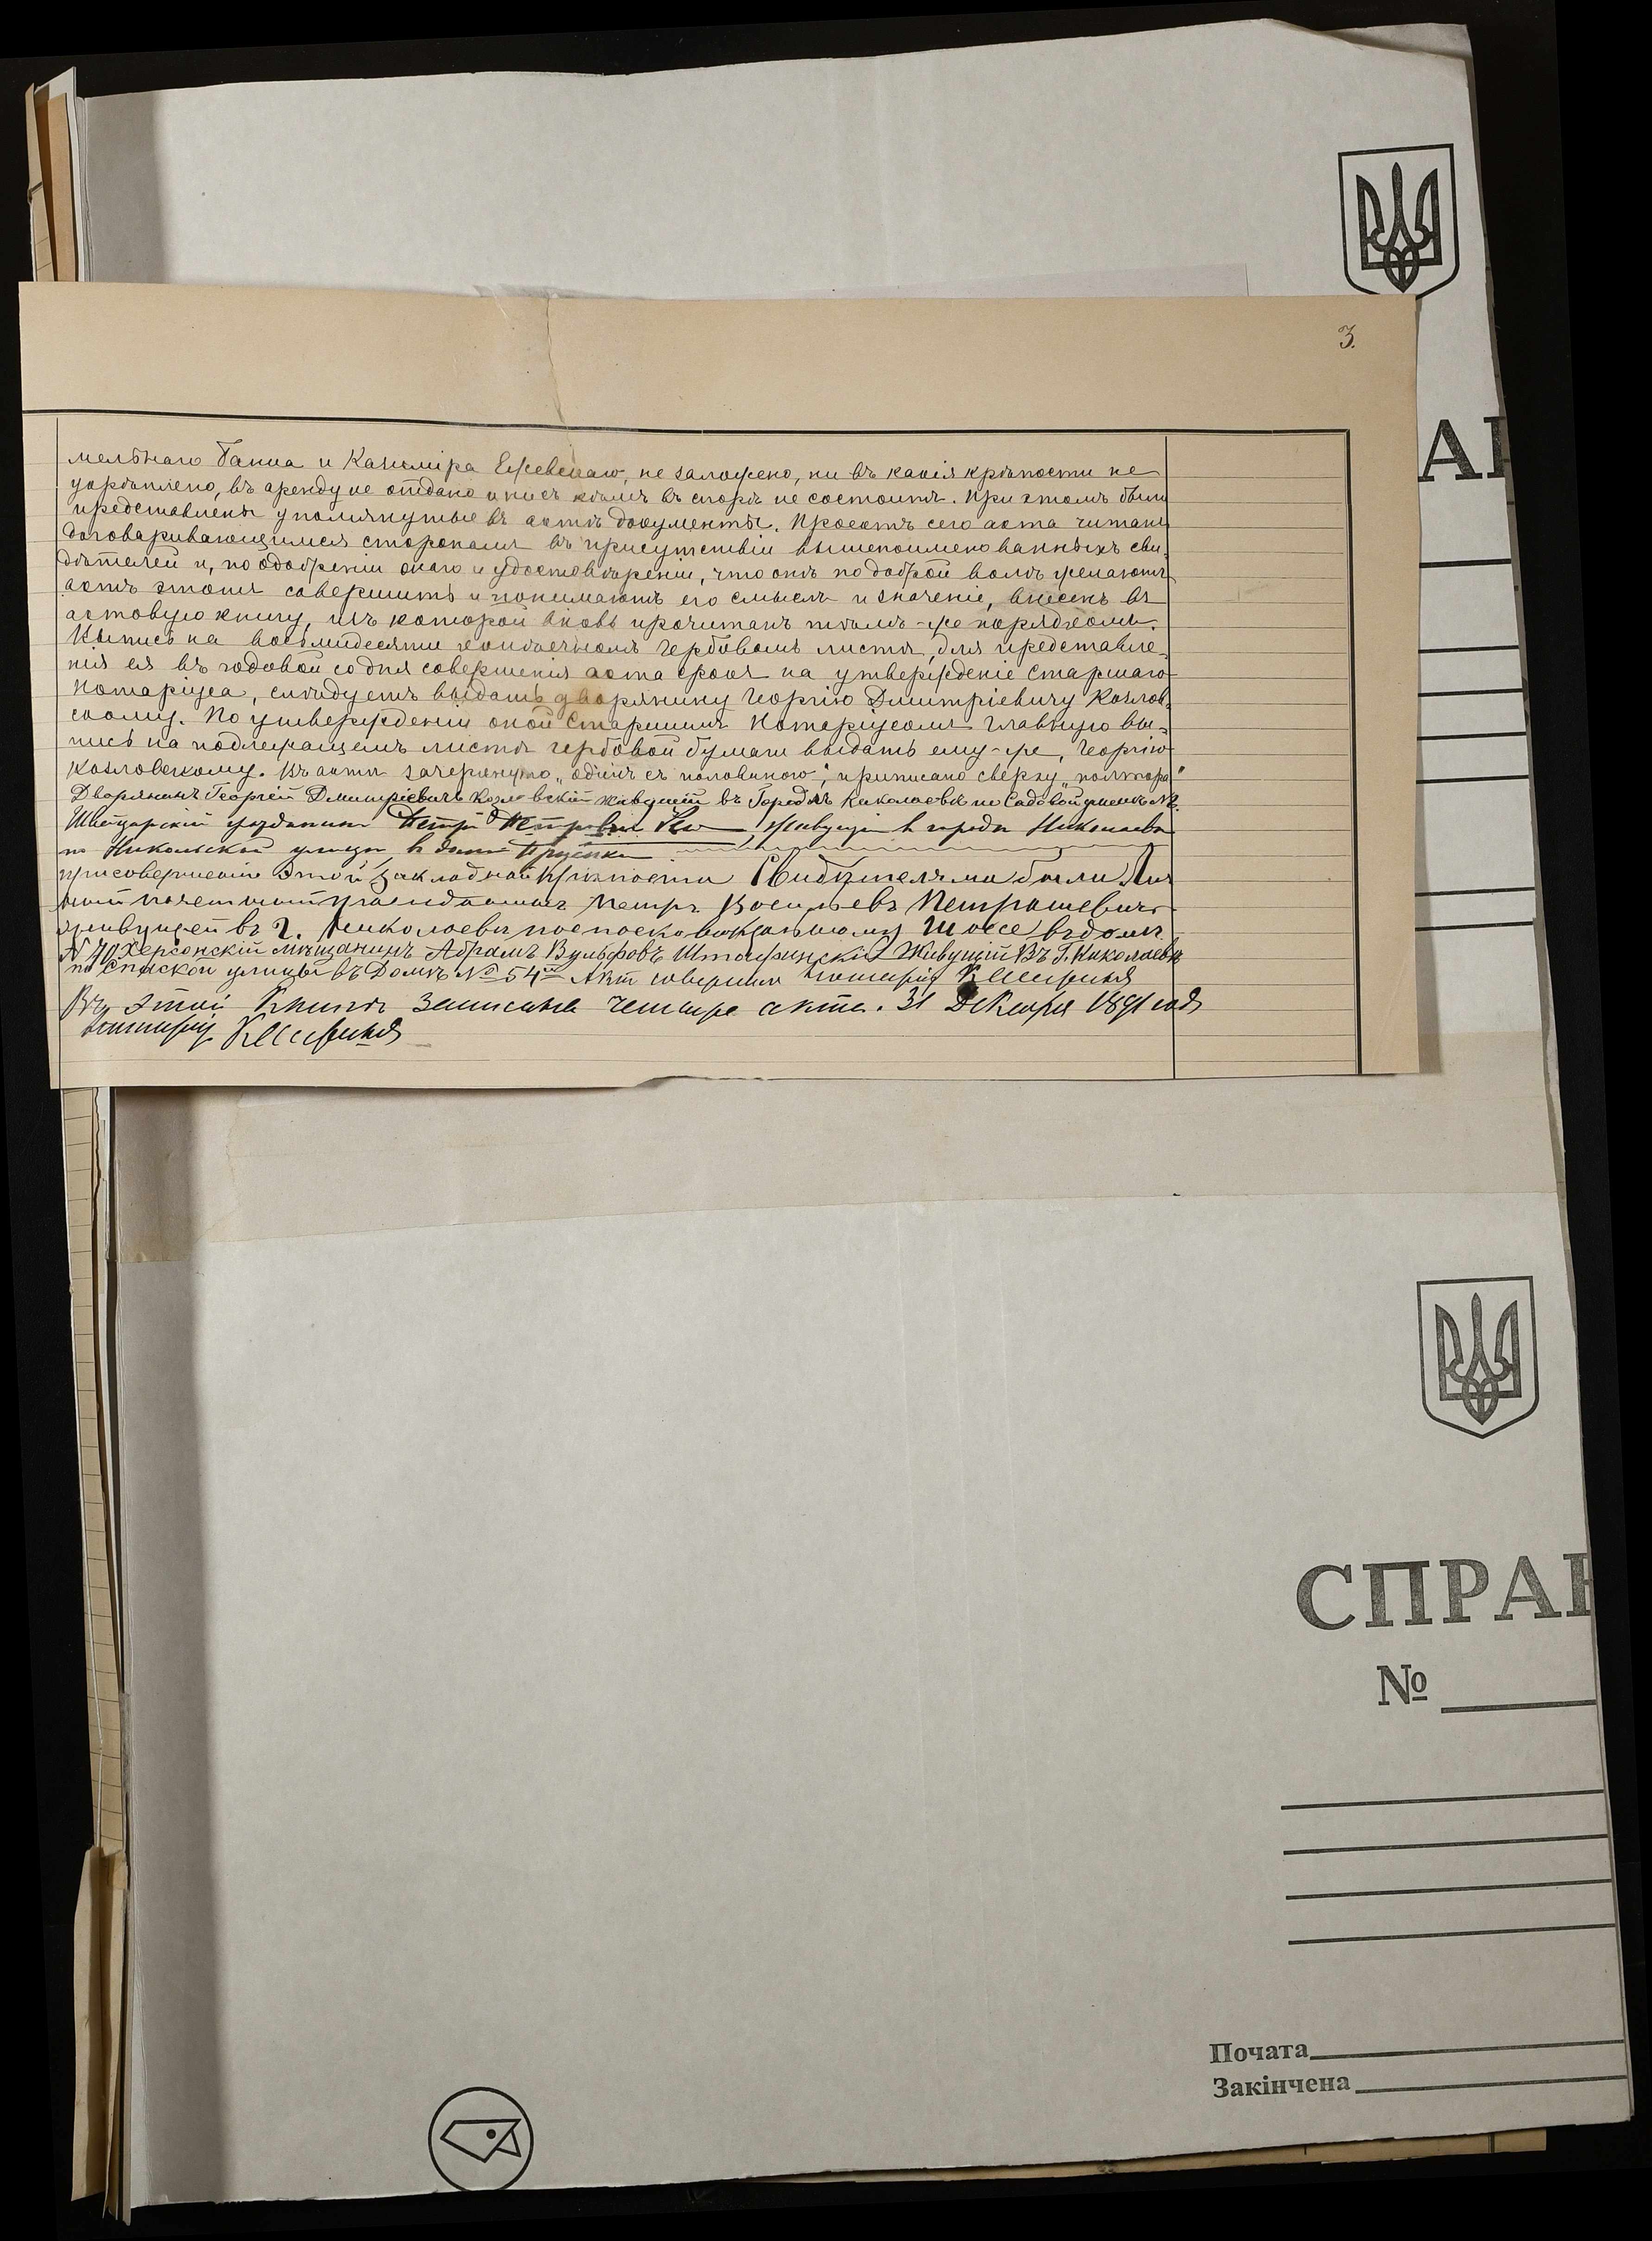 3.
мельнаго Банка и Казиміра Ежевскаго, не заложено, ни въ какія крѣпости не
укрѣплено, въ аренду не отдано и ни съ кѣмъ въ спорѣ не состоитъ. При этомъ были
представлены упомянутые въ актѣ документы. Проектъ сего акта читанъ
договаривающимся сторонамъ въ присутствіи вышепоименованныхъ сви-
дѣтелей и, по одобреніи онаго и удостовѣреніи, что онѣ по доброй волѣ желаютъ
актъ этотъ совершить и понимаютъ его смыслъ и значеніе, внесенъ въ
актовую книгу, изъ которой вновь прочитанъ тѣмъ-же порядкомъ.
Выпись на восьмидесяти копѣечномъ гербовомъ листѣ, для представле-
нія ея въ годовой со дня совершенія акта срокъ на утвержденіе Старшаго
Нотаріуса, слѣдуетъ выдать дворянину Георгію Дмитріевичу Козлов-
скому. По утвержденіи оной Старшимъ Нотаріусомъ главную вы-
пись на подлежащемъ листѣ гербовой бумаги выдать ему-же, Георгію
Козловскому. Въ актѣ зачеркнуто „одинъ съ половиною", приписано сверху „полтора"
Дворянинъ Георгій Дмитріевичъ Козловскій живущій въ Городѣ Николаевѣ по Садовой улицѣ №2.
Швейцарскій гражданинъ Петръ Петровъ живущій в городѣ Николаевѣ
по Никольской улицѣ в домѣ
При совершеніи этой закладной крѣпости Свидѣтелями были: Лич
ный почетный гражданинъ Петръ Васильевъ Петрашевичъ
живущей въ г. Николаевѣ по вокзальному Шоссе въ домѣ
N 70 Херсонскій мѣщанинъ Абрамъ Вульфовъ Живущій Въ Г. Николаевѣ
по Спаской улицѣ въ Домѣ № 54 Актъ совершилъ Нотаріусъ
Въ этой Книгѣ записано четыре акта. 31 Декабря 1891 года
Нотаріусъ
АР
СПРАВ
№
Почата
Закінчена